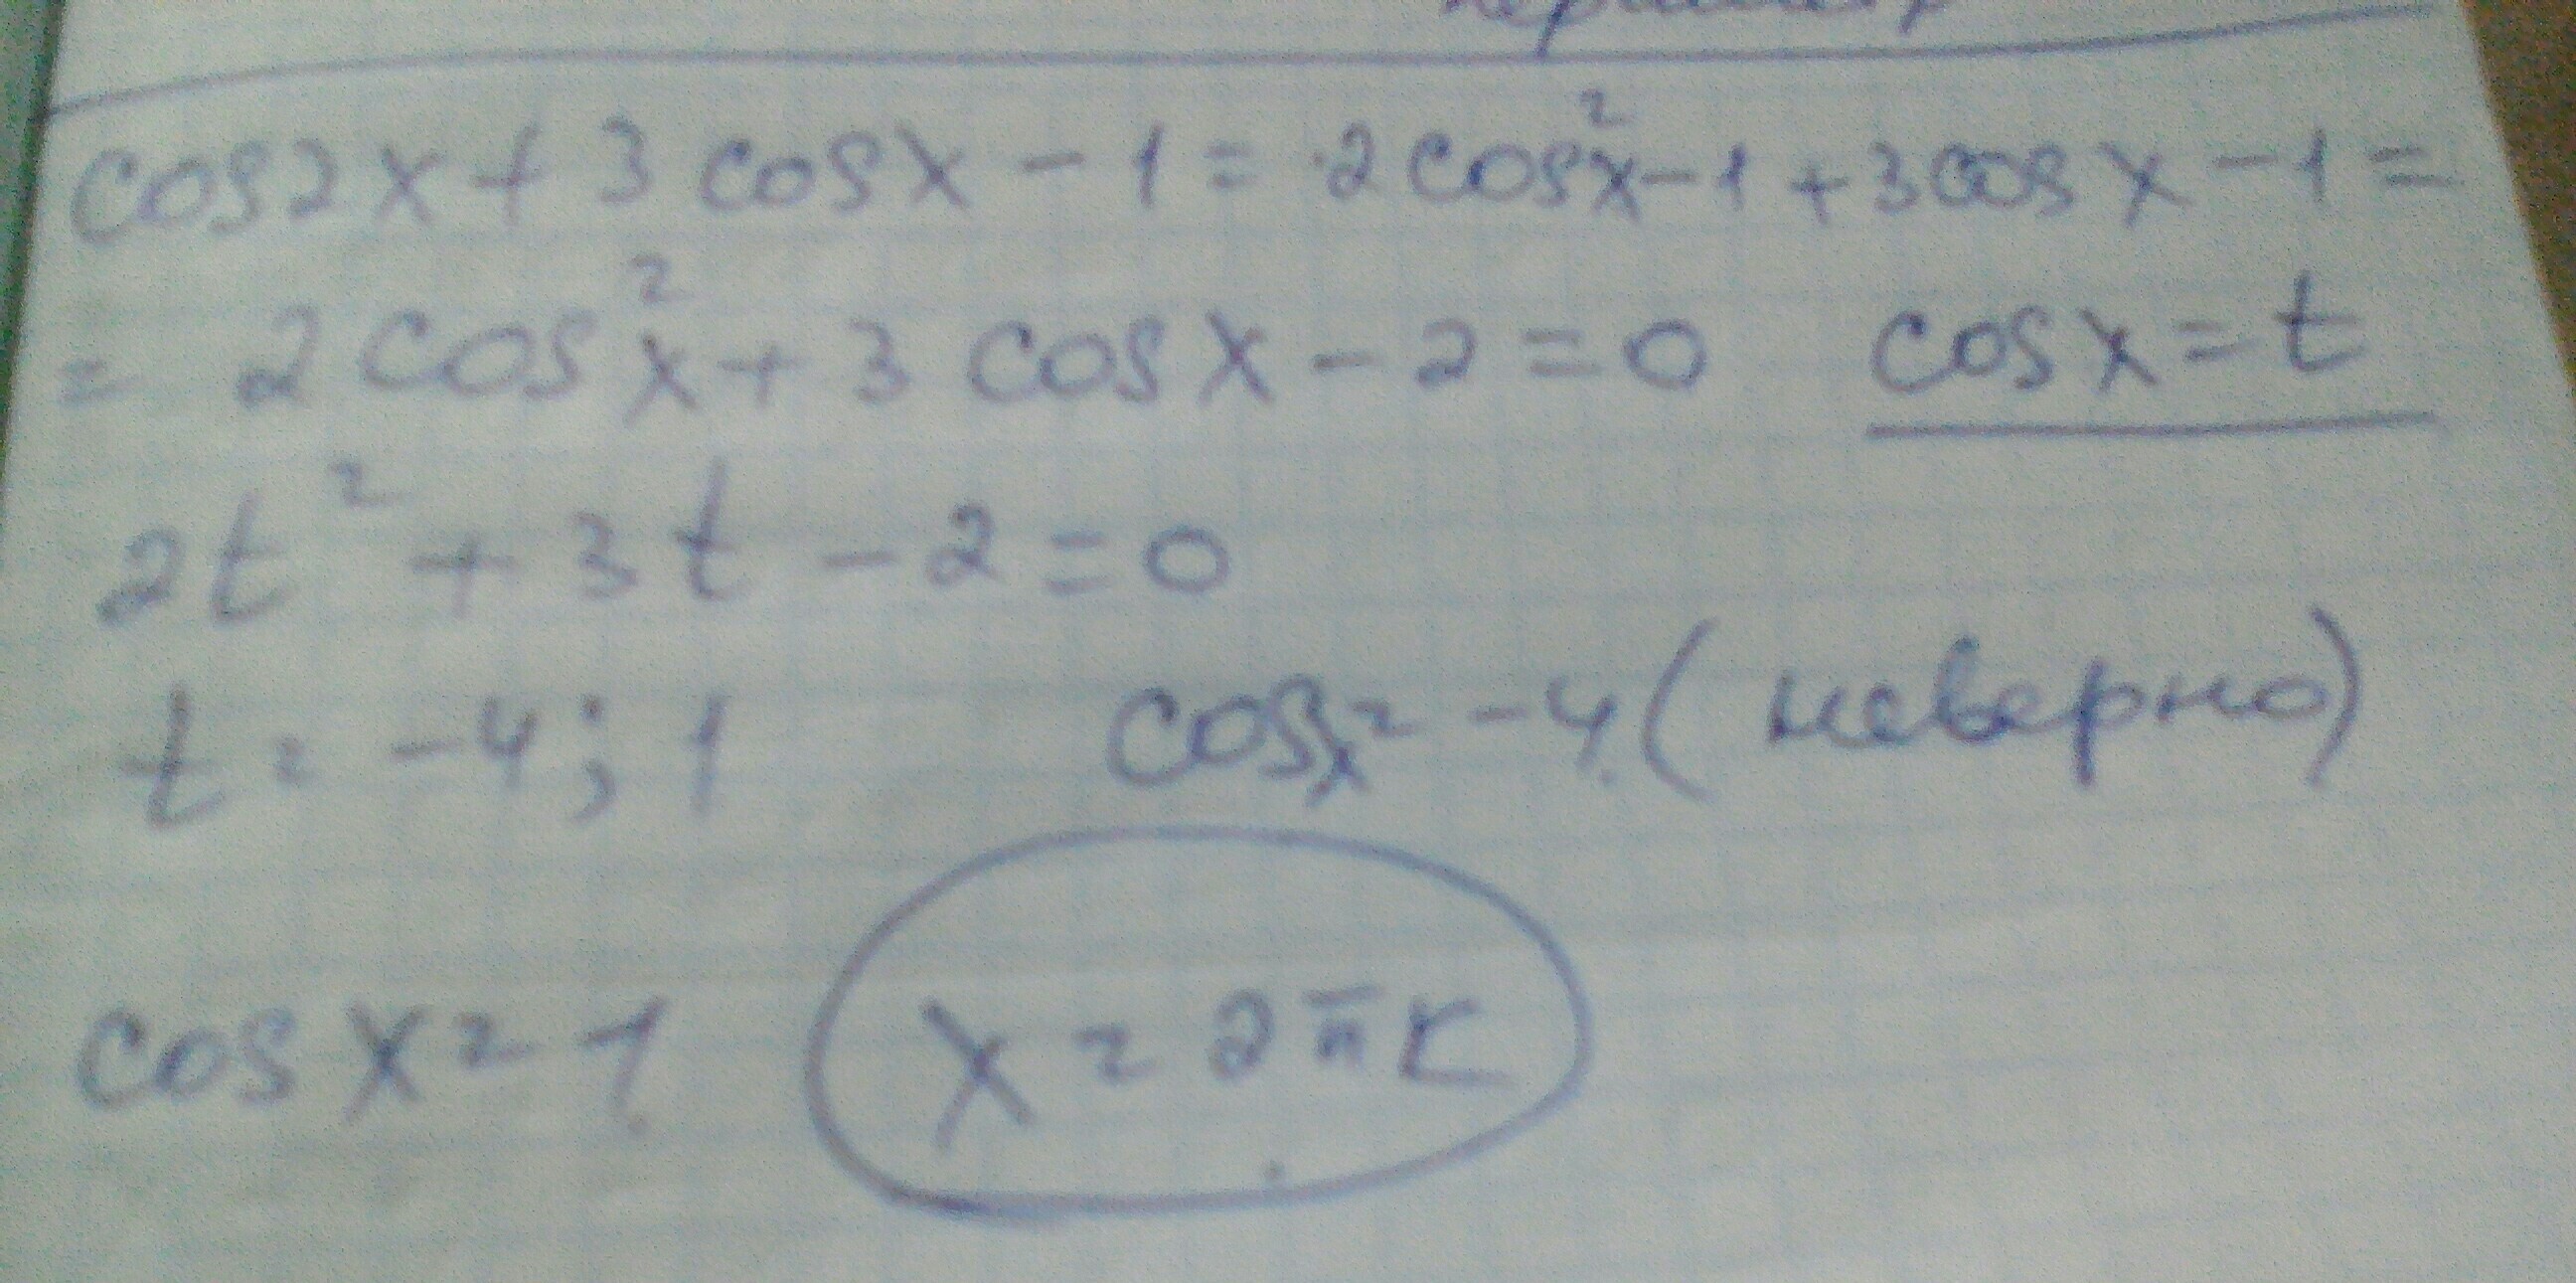 cos2x + 3 cosx - 1 = 2cos²x - 1 + 3cosx - 1 =
= 2cos²x + 3 cosx - 2 = 0 cosx = t
2t² + 3t - 2 = 0
t = -4; 1 cosx = -4 (неверно)
cosx = 1 x = 2πk